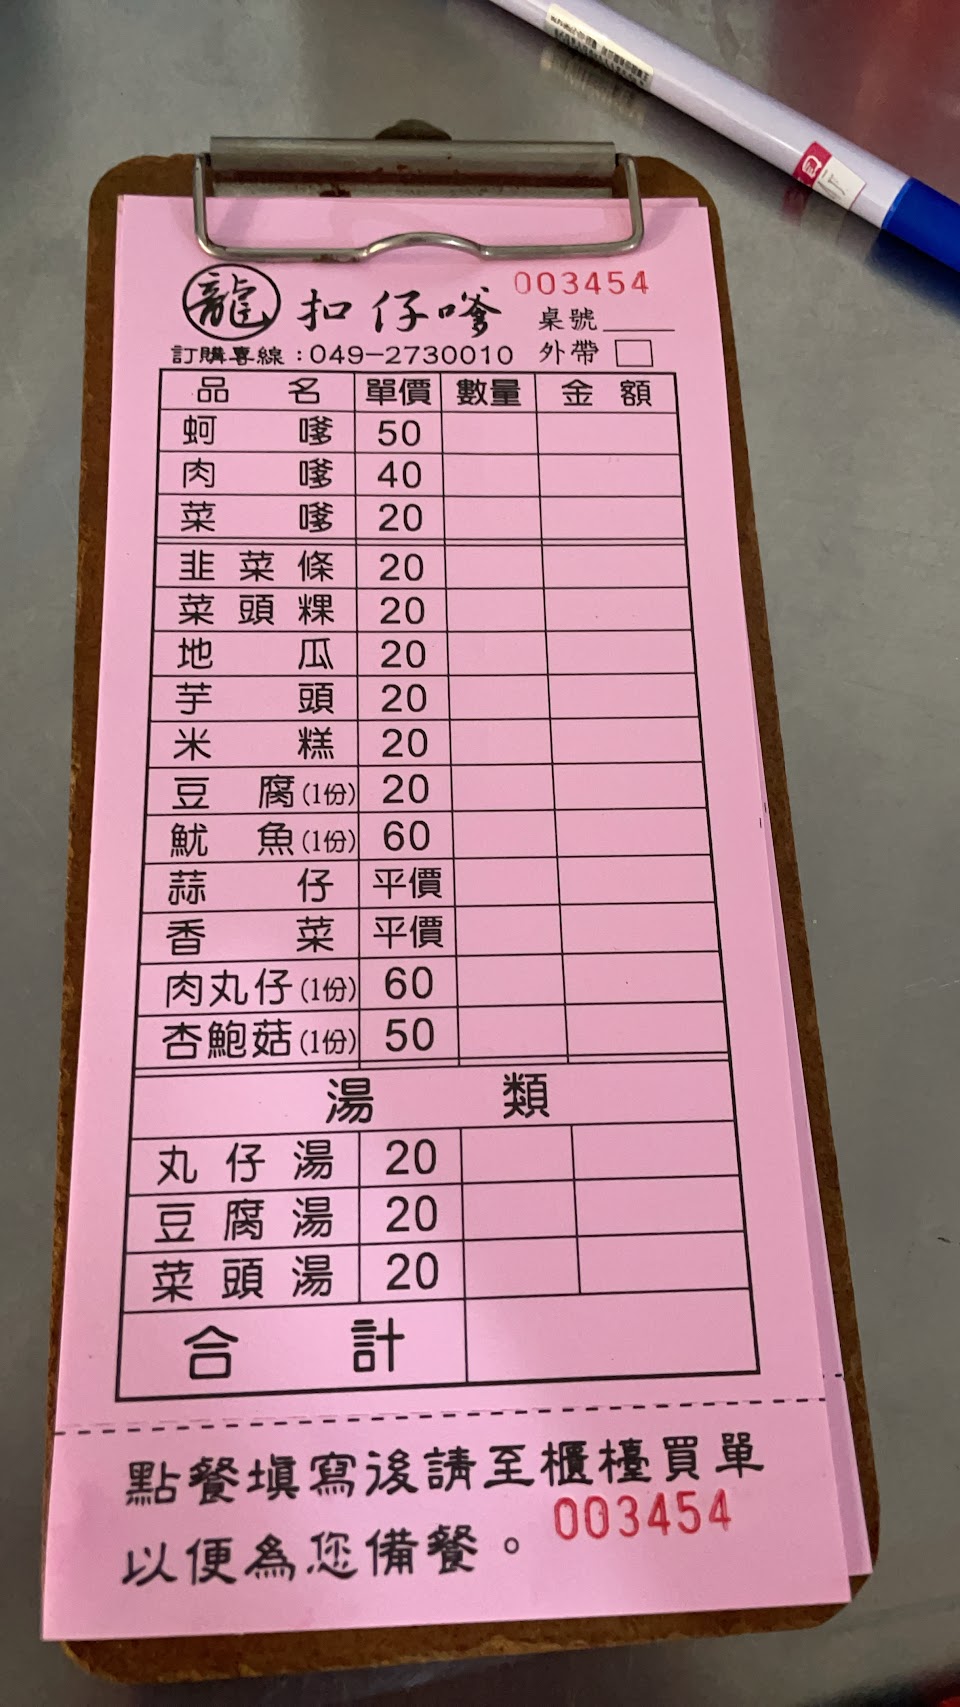 龍 扣仔嗲 003454
桌號
訂購專線：049-2730010 外帶
品名 單價 數量 金額
蚵嗲 50
肉嗲 40
菜嗲 20
韭菜條 20
菜頭粿 20
地瓜 20
芋頭 20
米糕 20
豆腐(1份) 20
魷魚(1份) 60
蒜仔 平價
香菜 平價
肉丸仔(1份) 60
杏鮑菇(1份) 50
湯類
丸仔湯 20
豆腐湯 20
菜頭湯 20
合計
點餐填寫後請至櫃檯買單
003454
以便為您備餐。